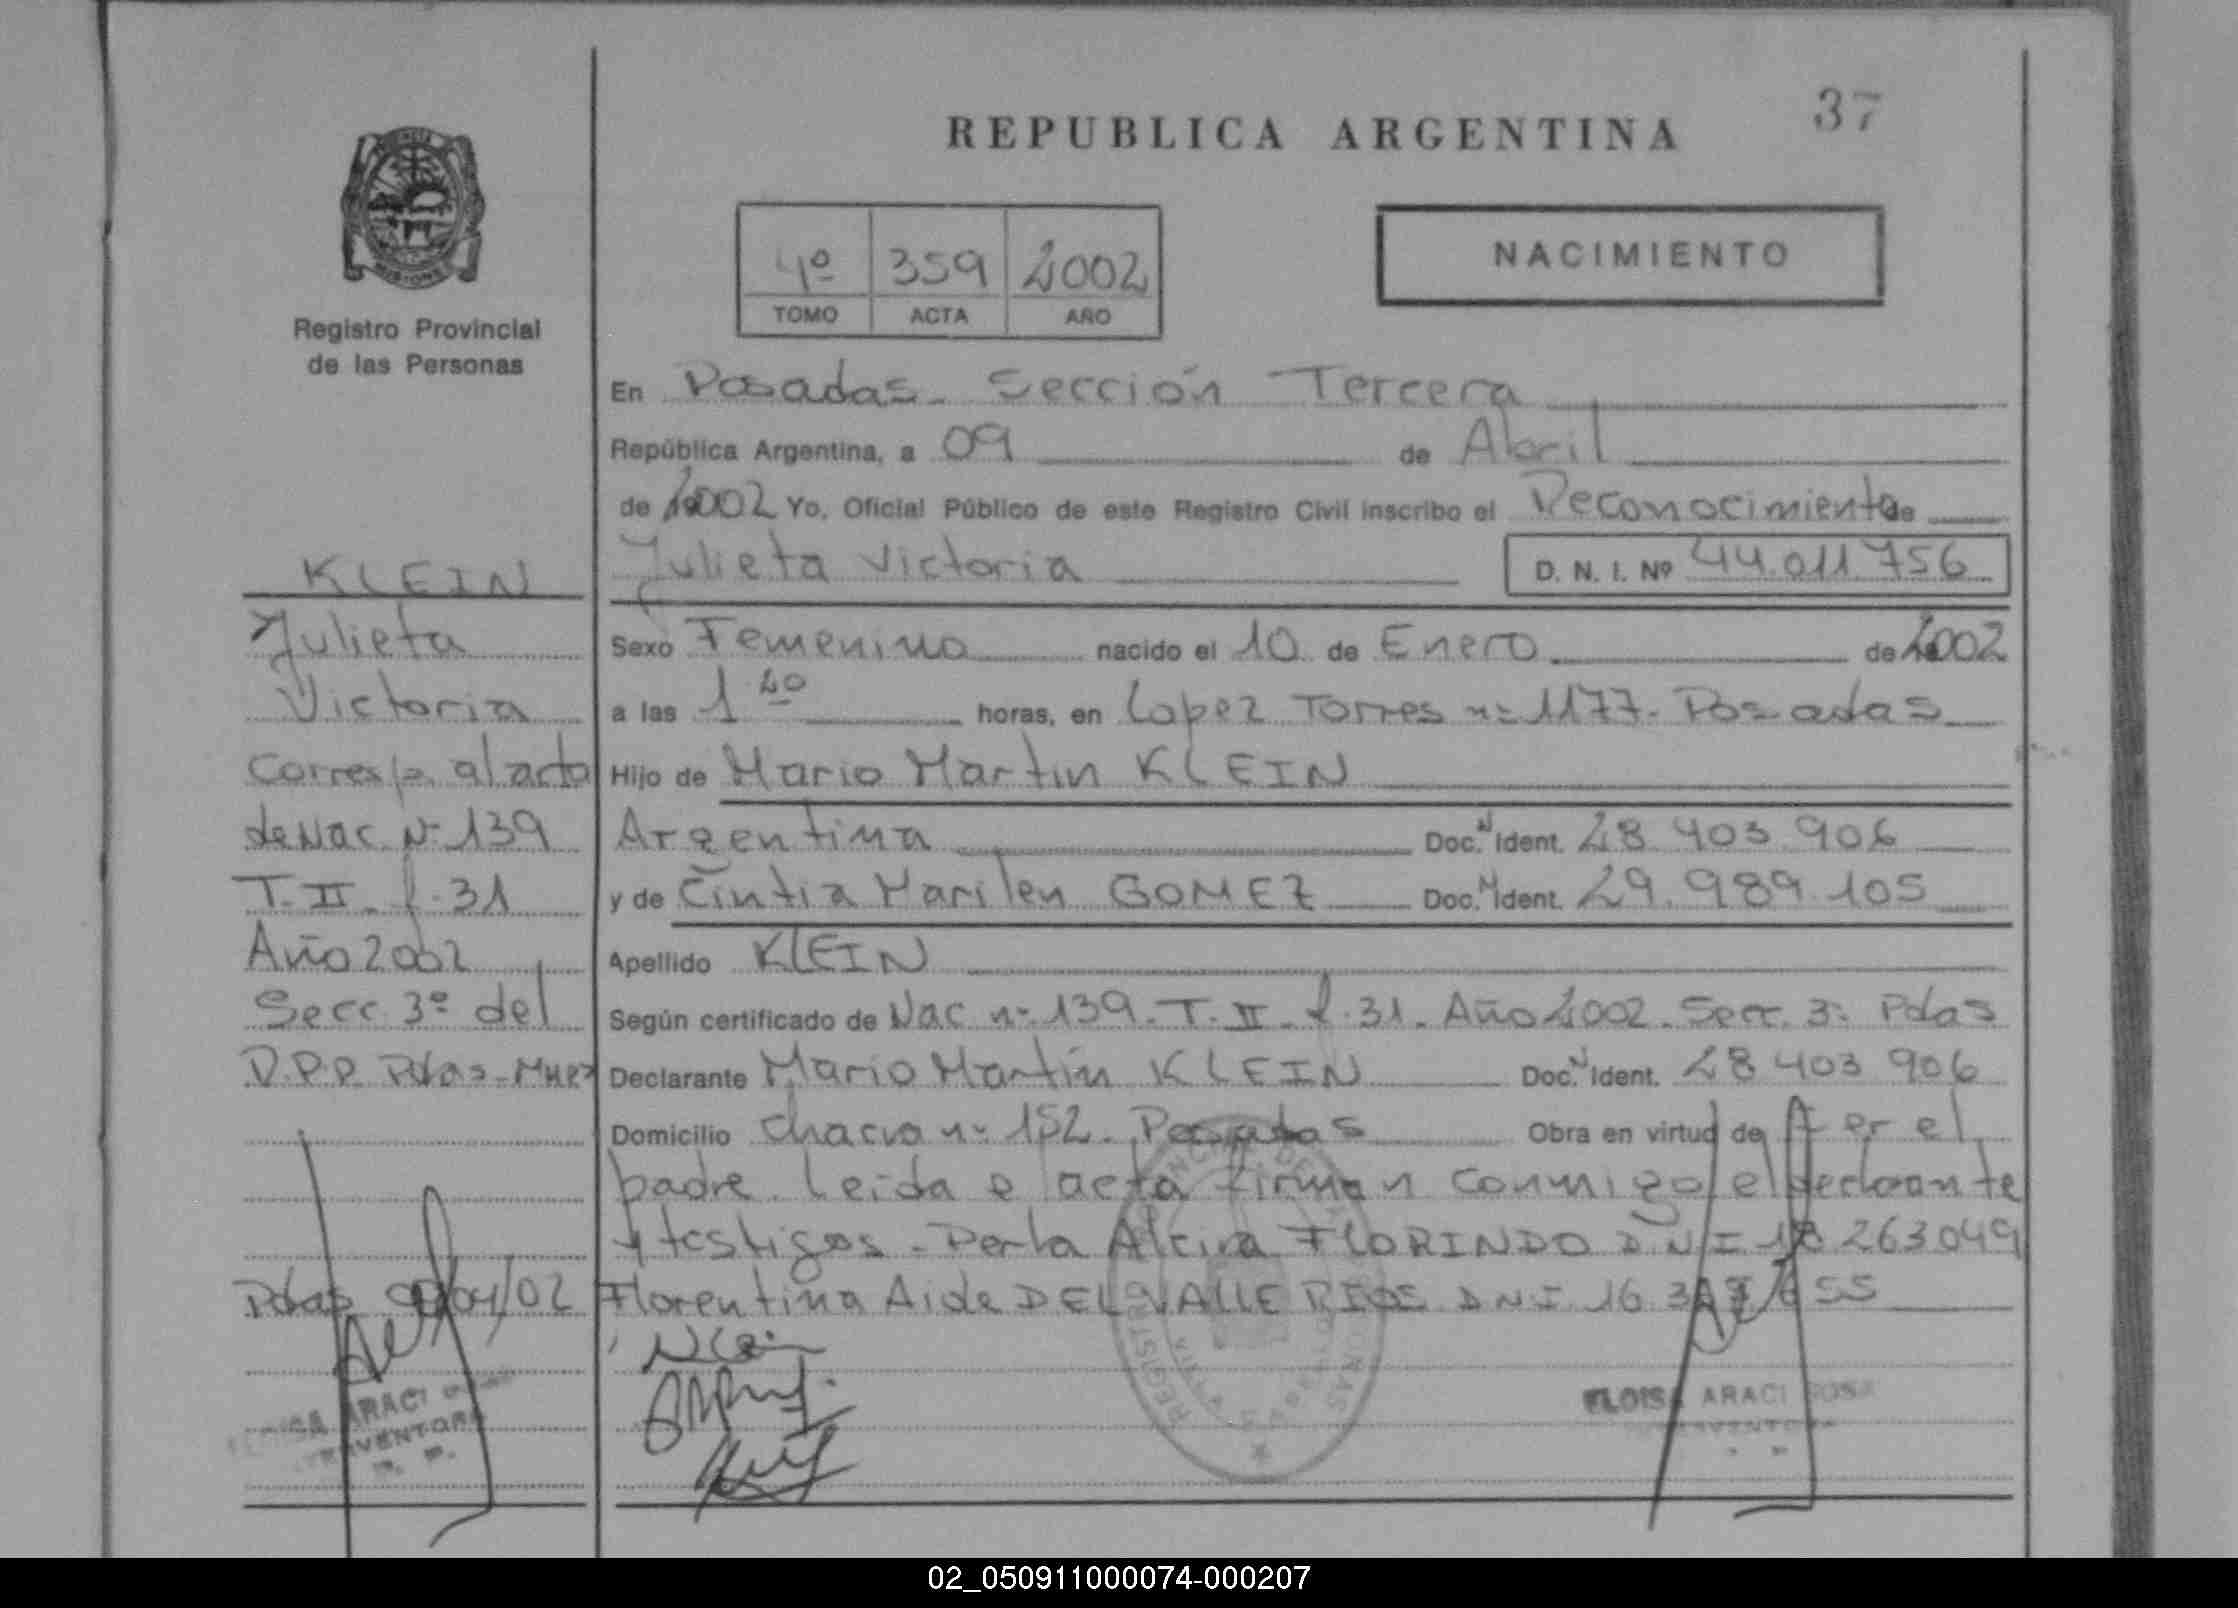 37
REPUBLICA ARGENTINA
4º 359 2002
TOMO ACTA AÑO
NACIMIENTO
Registro Provincial
de las Personas
En Posadas - Sección Tercera
República Argentina, a 09 de Abril
de 2002 Yo, Oficial Público de este Registro Civil inscribo el Reconocimiento de
Julieta Victoria D. N. I. Nº 44.011.756
Sexo Femenino nacido el 10 de Enero de 2002
a las 1 horas, en Lopez Torres nº 1177 - Posadas
Hijo de Mario Martin KLEIN
Argentina Doc. N Ident. 28 403 906
y de Cintia Marilen GOMEZ Doc. N Ident. 29.989.105
Apellido KLEIN
Según certificado de Nac nº 139 - T. II - f. 31. Año 2002. Secc. 3ª Pdas
Declarante Mario Martín KLEIN Doc. N Ident. 28 403 906
Domicilio chacra nº 152. Posadas Obra en virtud de ser el
padre. Leída el acta firman conmigo el declarante
y testigos - Perla Alcira FLORINDO DNI 263049
Florentina Aide DEL VALLE RIOS DNI 16
KLEIN
Julieta
Victoria
Corresp. al acta
de Nac Nº 139
T. II - f. 31
Año 2002
Secc. 3ª del
R.P.P. Pdas - Mnes
Pdas 09/04/02
ELOISA ARACI
ELOISA ARACI SOSA
02_050911000074-000207